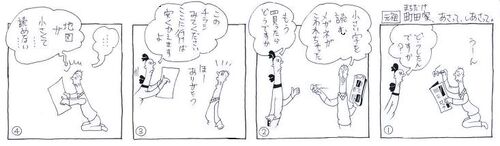 元祖
まちだけ
町田家
あさって、しあさって。
うーん
どうしたん
ですか
?
①
小さい字を
読む
メガネが
こわれちゃった
もう
買ったら
どうですか
②
この
チラシ
みてください
ここに行けば
安く買えます
よ
ほー
ありがとう
③
……
地図
が
小さくて
読めない…
④